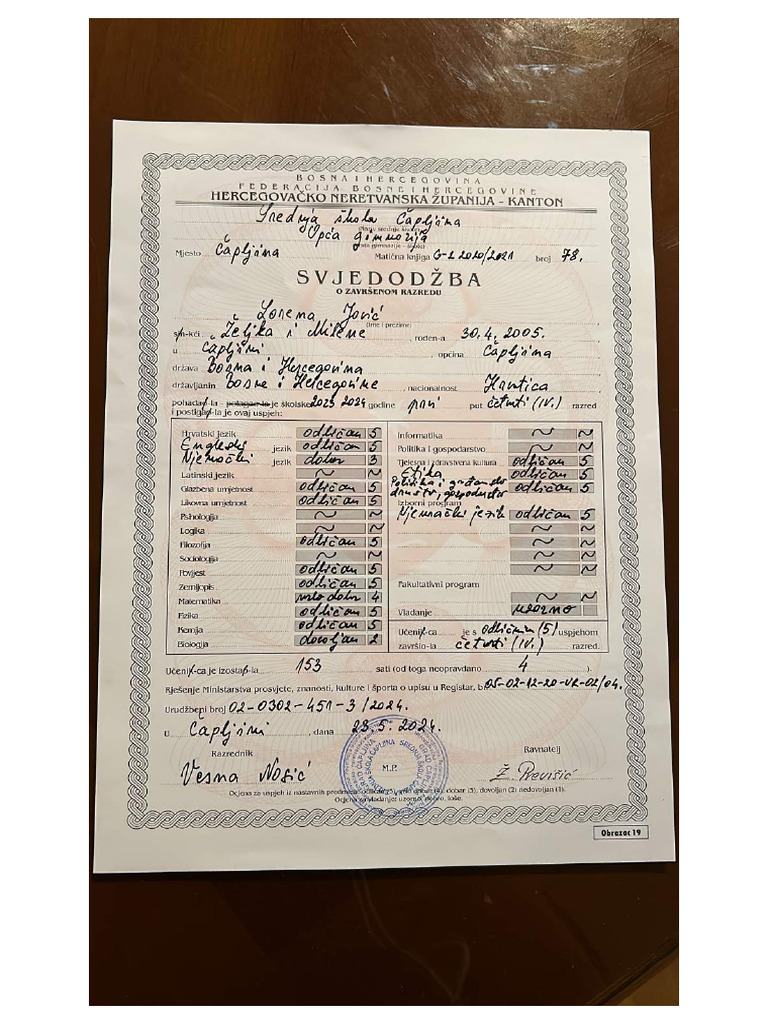 BOSNA I HERCEGOVINA
FEDERACIJA BOSNE I HERCEGOVINE
HERCEGOVAČKO NERETVANSKA ŽUPANIJA - KANTON
Srednja škola Čapljina
(Naziv srednje škole)
Opća gimnazija
Mjesto Čapljina Matična knjiga G-1 2020/2021 broj 78.
SVJEDODŽBA
O ZAVRŠENOM RAZREDU
Lorena Jović
(Ime i prezime)
sin-kći Željka i Milene, rođen-a 30.4.2005.
u Čapljini, općina Čapljina
država Bosna i Hercegovina
državljanin Bosne i Hercegovine, nacionalnost Hrvatica
pohađao-la - polagao-la je školske 2023 2024 godine prvi put četvrti (IV.) razred
i postigao-la je ovaj uspjeh:
Hrvatski jezik odličan 5
Engleski jezik odličan 5
Njemački jezik dobar 3
Latinski jezik ~ ~
Glazbena umjetnost odličan 5
Likovna umjetnost odličan 5
Psihologija ~ ~
Logika ~ ~
Filozofija odličan 5
Sociologija ~ ~
Povijest odličan 5
Zemljopis odličan 5
Matematika vrlo dobar 4
Fizika odličan 5
Kemija odličan 5
Biologija dovoljan 2
Informatika ~ ~
Politika i gospodarstvo ~ ~
Tjelesna i zdravstvena kultura odličan 5
Etika odličan 5
Politika i građansko odličan 5
društvo, gospodarstvo
Izborni program
Njemački jezik odličan 5
~ ~
~ ~
~ ~
Fakultativni program
~ ~
Vladanje uzorno
Učenik-ca je s odličnim (5) uspjehom
završio-la četvrti (IV.) razred.
Učenik-ca je izostao-la 153 sati (od toga neopravdano 4 ).
Rješenje Ministarstva prosvjete, znanosti, kulture i športa o upisu u Registar, br. 05-02-12-20-UR-02/04.
Urudžbeni broj 02-0302-451-3/2024.
U Čapljini, dana 23.5.2024.
Razrednik Ravnatelj
M.P.
Vesna Nosić Ž. Previšić
Ocjena za uspjeh iz nastavnih predmeta: odličan (5), vrlo dobar (4), dobar (3), dovoljan (2) nedovoljan (1).
Ocjena za vladanje: uzorno, dobro, loše.
Obrazac 19